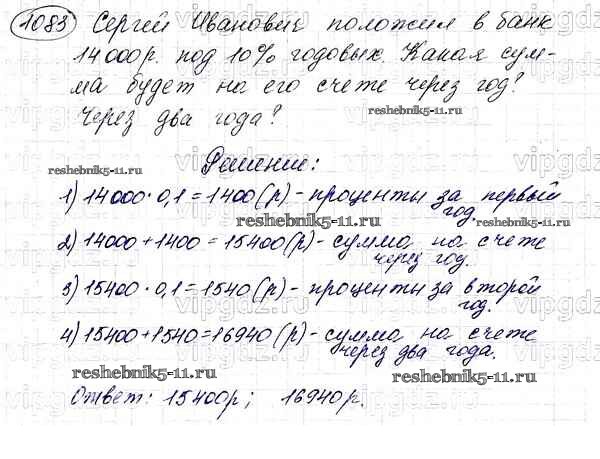 1083 Сергей Иванович положил в банк
14000р. под 10% годовых. Какая сум-
ма будет на его счете через год?
Через два года?
resheebnik5-11.ru
Решение:
reshebnik5-11.ru
1) 14000·0,1=1400(р)-проценты за первый
год.
reshebnik5-11.ru
reshebnik5-11.ru
2) 14000+1400=15400(р)-сумма на счете
через год.
3) 15400·0,1=1540(р)-проценты за второй
год.
4) 15400+1540=16940(р)-сумма на счете
через два года.
reshebnik5-11.ru
reshebnik5-11.ru
Ответ: 15400р; 16940р.
vipgdz.ru